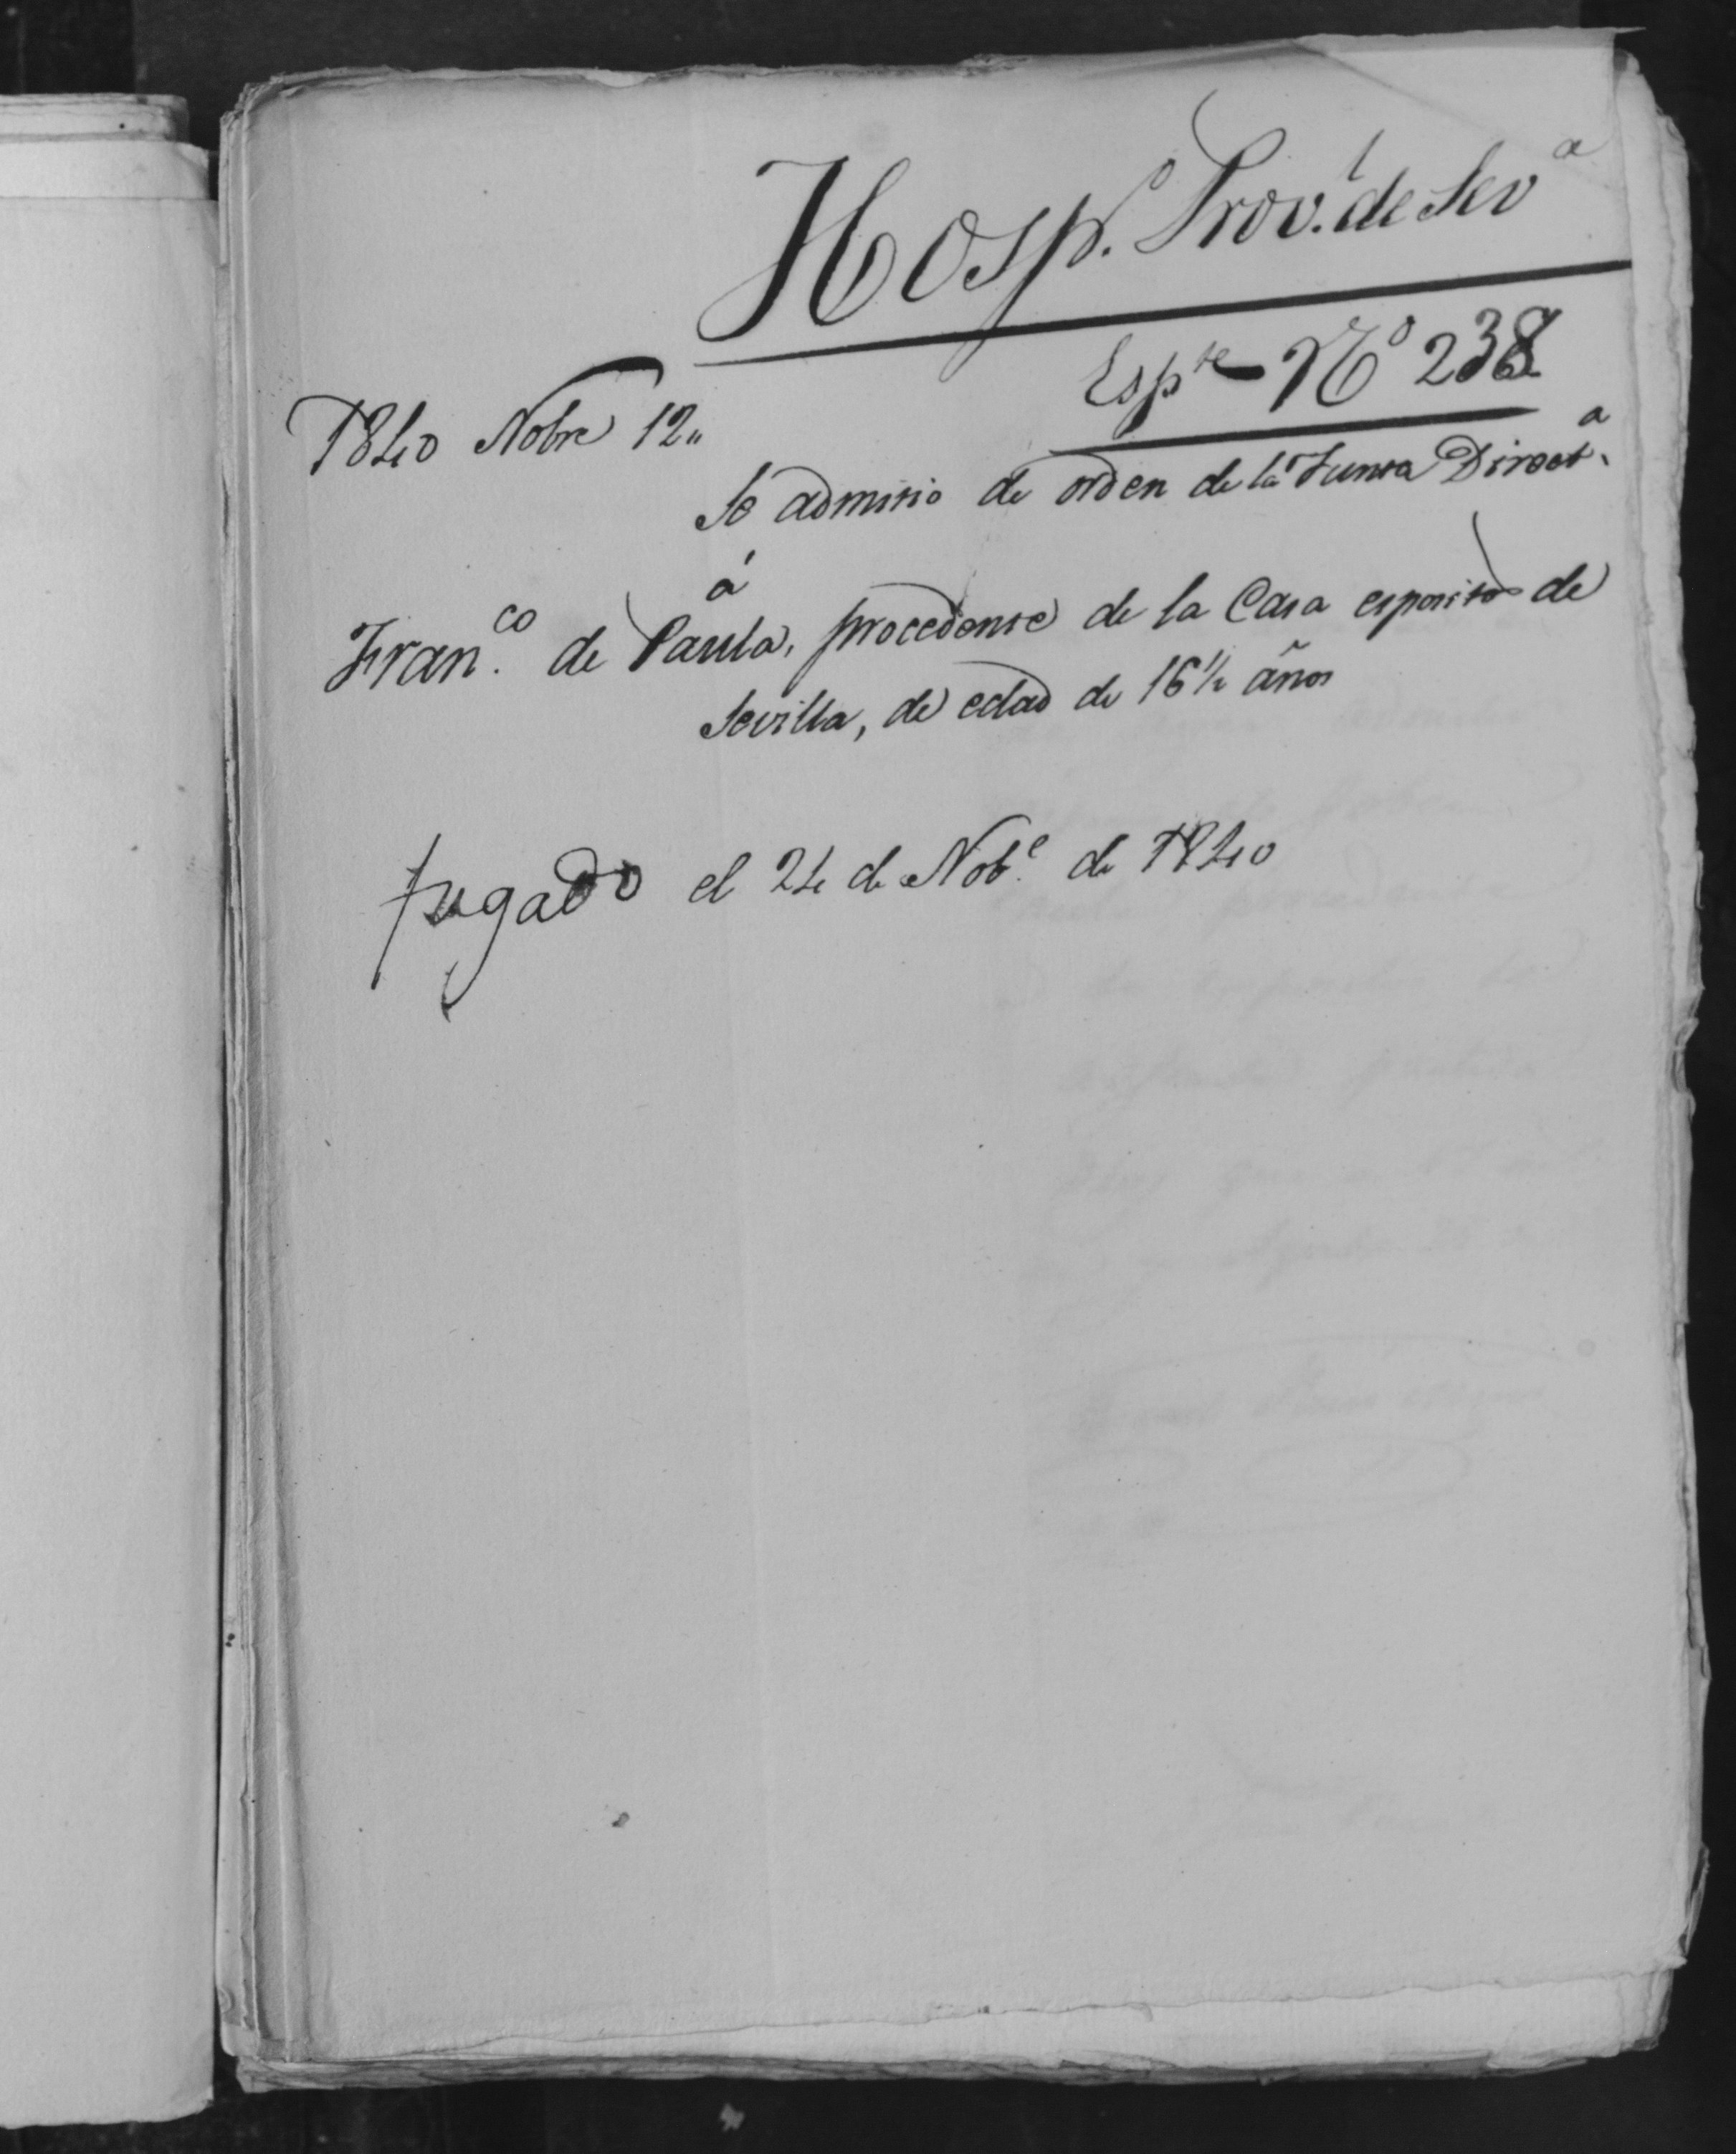 Hosp.º Prov.l de Sevª
Espte Nº 238
1840 Nobre 12„
Se admitio de orden de la Junta Direct.ª
á
Fran.co de Paula, procedente de la Casa espositos de
Sevilla, de edad de 16 1/2 años
fugado el 24 de Nob.e de 1840